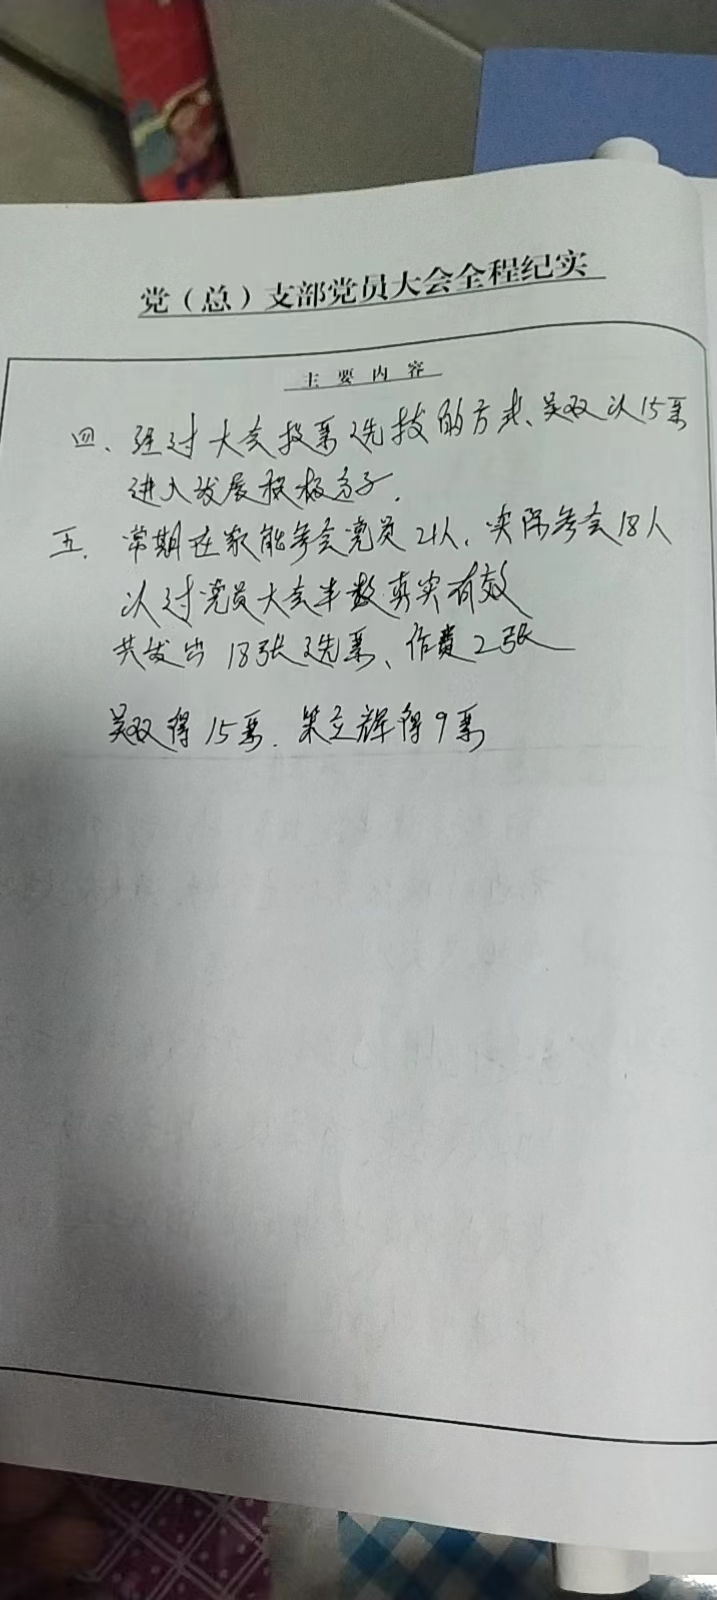 党（总）支部党员大会全程纪实
主要内容
四、经过大会投票选拔的方式、吴双以15票
进入发展积极分子.
五. 常期在家能参会党员21人, 实际参会18人
以过党员大会半数真实有效
共发出18张选票、作费2张
吴双得15票. 立辉得9票